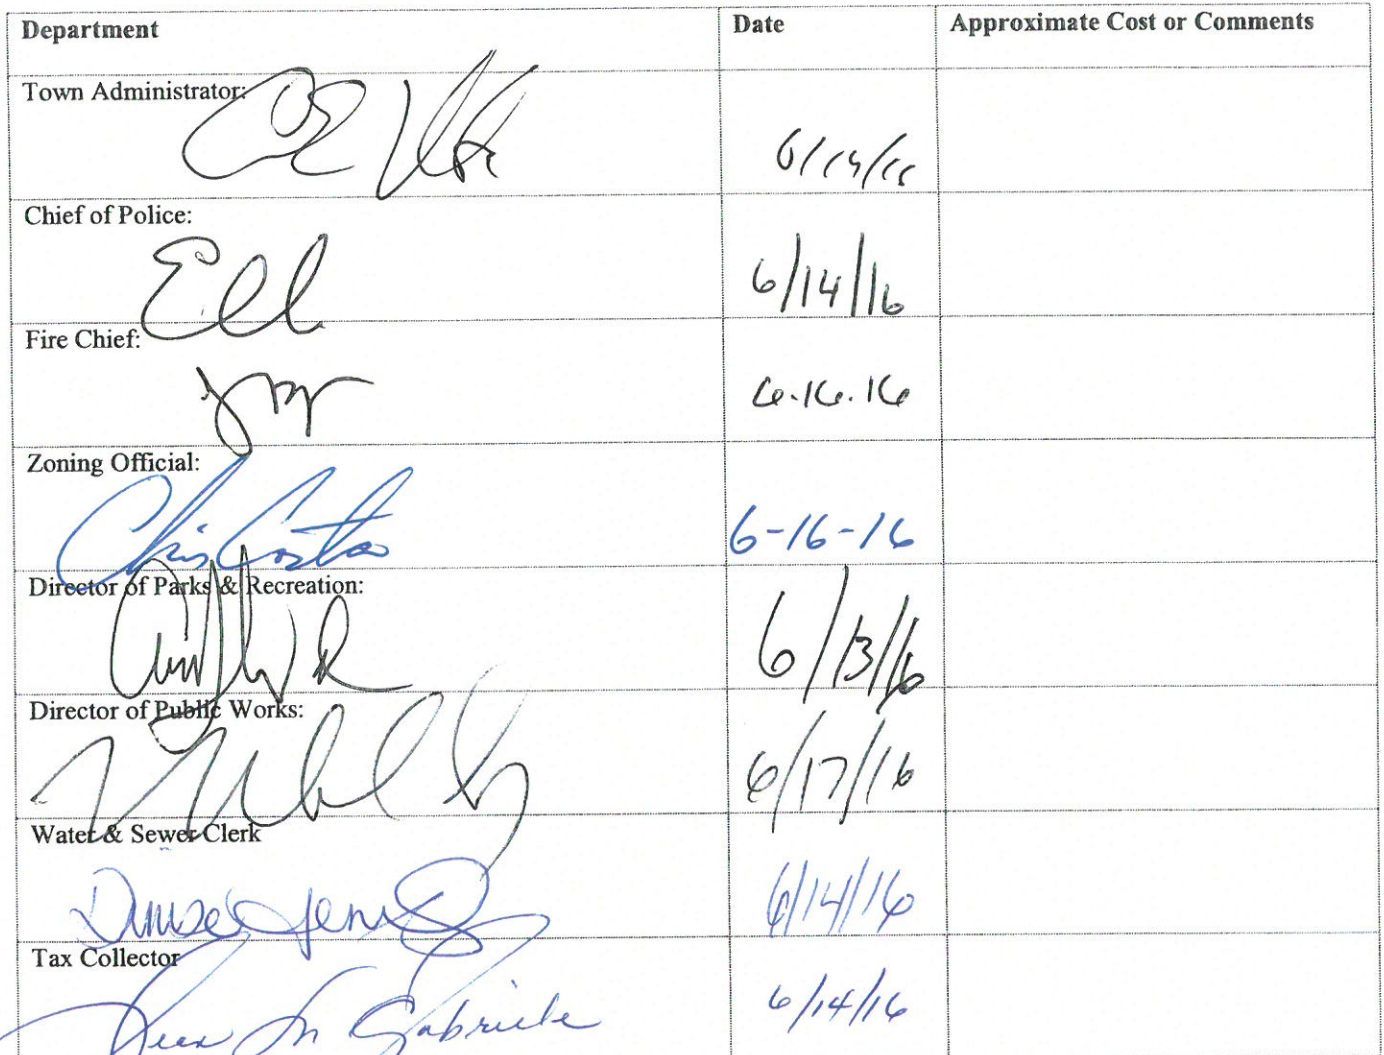 Department Date Approximate Cost or Comments
Town Administrator:
Chief of Police:
6/14/16
Fire Chief:
6.16.16
Zoning Official:
Chris Costa 6-16-16
Director of Parks & Recreation:
6/13/16
Director of Public Works:
6/17/16
Water & Sewer Clerk
6/14/16
Tax Collector
Gabriele 6/14/16